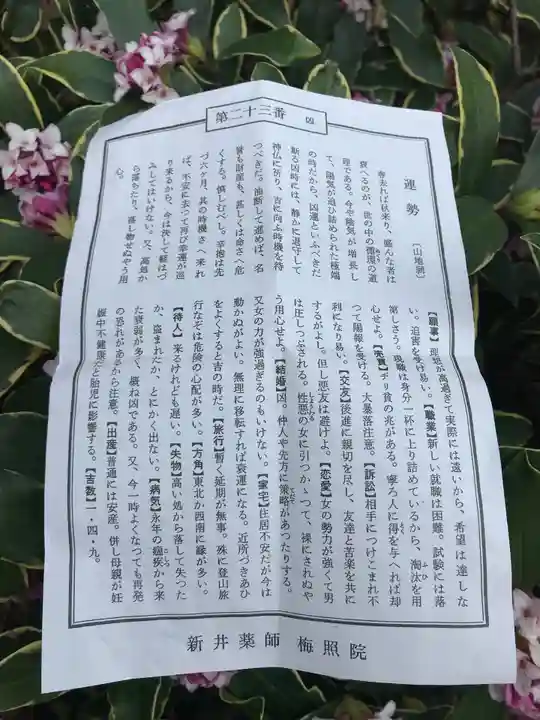 第二十三番
09
運勢
〔山地剝〕
春去れば秋来り、盛んな者は
衰へるのが、世の中の循環の道
理である。今や陰気が増長し
て、陽気が追ひ詰められた極端
の時だから、凶運といふべきだ
斯る凶時には、静かに退守して
神仏に祈り、吉に向ふ時機を待
つべきだ。油断して進めば、名
誉も財産も、甚しくは命さへ危
くする。慎しむべし。辛抱は先
づ六ヶ月、其の時機さへ来れ
ば、不安に去つて再び幸運が巡
り来るから、今は決して騒はづ
みしてはいけない。又、高処か
ら落ちたり、蒸し物せぬやう用
心。
【願事】理想が高過ぎて実際には遠いから、希望は達しな
い。迫害を受け易い。【職業】新しい就職は困難。試験には落
第しさう。現職は身分一杯に上り詰めているから、淘汰を用
心せよ。【売買】ヂリ貧の兆がある。寧ろ人に得を与へれば却
つて陽報を受ける。大暴落注意。【訴訟】相手につけこまれ不
利になり易い。【交友】後進に親切を尽し、友達と苦楽を共に
するがよし。但し悪友は避けよ。【恋愛】女の勢力が強くて男
は圧しつぶされる。性悪の女に引つかゝつて、裸にされぬや
う用心せよ。【結婚】凶。仲人や先方に策略があつたりする。
又女の力が強過ぎるのもいけない。【家宅】住居不安だが今は
動かぬがよい。無理に移転すれば衰運になる。近所づきあひ
をよくすると吉の時だ。【旅行】暫く延期が無事。殊に登山旅
行などは危険の心配が多い。【方角】東北か西南に縁が多い。
【待人】来るけれども遅い。【失物】高い処から落して失つた
か、盗まれたか、とにかく出ない。【病気】永年の痼疾から来
た衰弱が多く、概ね凶である。又、今一時よくなつても再発
の恐れがあるから注意。【出産】普通には安産。併し母親が妊
娠中不健康だと胎児に影響する。【吉数】一・四・九。
新井薬師 梅照院